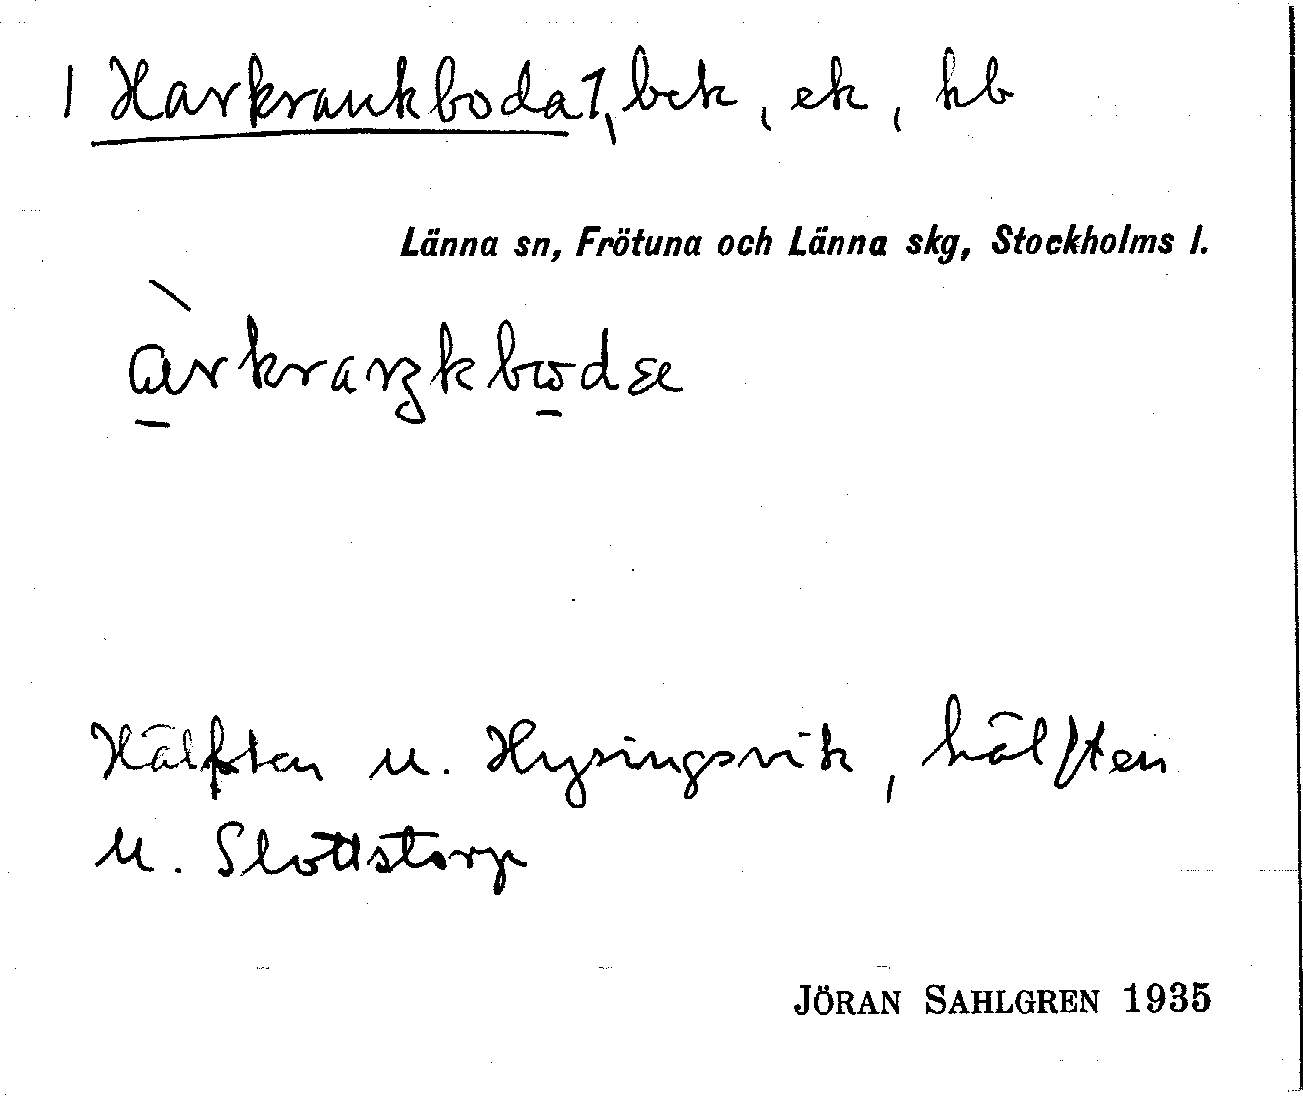 1 Harkrankboda 1, bek, ek, hb
Länna sn, Frötuna och Länna skg, Stockholms l.
àrkraŋkbωdα
Hälften u. Hysingsvik, hälften
u. Slottstorp
JÖRAN SAHLGREN 1935